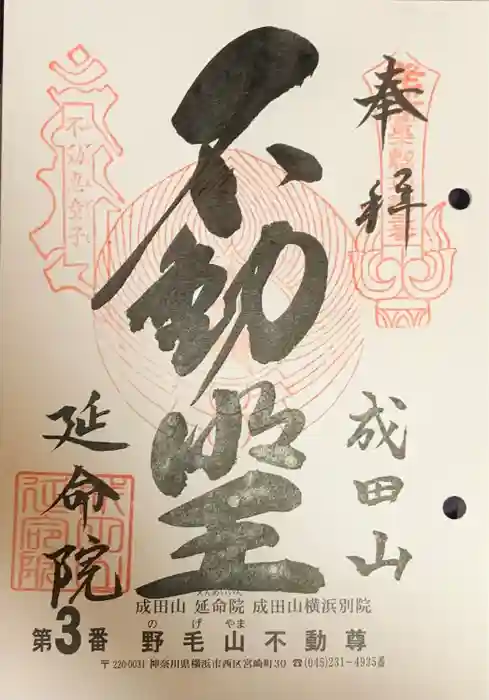 奉拝
成田山
不動明王
延命院
えんめいいん
成田山 延命院 成田山横浜別院
の げ やま
第3番 野毛山不動尊
〒220-0031 神奈川県横浜市西区宮崎町30 ☎(045)231-4935番